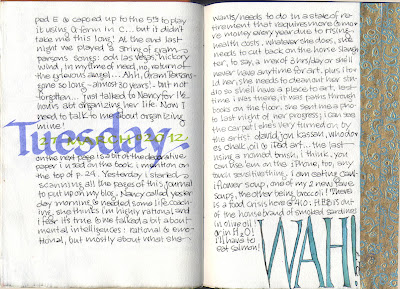 ped E & capoed up to the 5th to play
it using G form in C... but it didn't
take me this long! At the end last
night we played a string of gram
parsons songs: ooh las vegas, hickory
wind, in my time of need, no, return of
the grievous angel... Ahh, Gram Parsons
gone so long - almost 30 years! - but not
forgotten... I just talked to Nancy for 1½
hours abt organizing her life. Now I
need to talk to me about organizing
mine!
Tuesday.
27 MARCH 2012
on the next page is a bit of the decorative
paper in sad on the book i mention on
the top of p. 24. Yesterday i started
scanning all the pages of this journal
to put up on my blog. Nancy called yester
day morning & needed some life coach-
ing. She thinks i'm highly rational, and
i fear it's true & we talked a bit about
mental intelligences: rational & emo-
tional, but mostly about what she
wants/needs to do in a state of re-
tirement that requires more & mo-
re money every year due to rising
health costs, whatever. She does, she
needs to cut back on the horse slaugh
ter, to say, a mere 3 hrs/day or she'll
never have anytime for art. plus i to
ld her she needs to clean her stu-
dio so she'll have a place to art. last
time i was there, it was paths through
boxes on the floor. She sent me a pho-
to last night of her progress; i can see
the carpet. else's very turned on by
the artist david jon kassan, who do-
es chalk, oil & iPad art - the last
using a nomad brush, i think. you
can use 'em on the iPhone, for any
touch situation. I am eating cauli-
flower soup, one of my 2 new fave
soups, the other being broccoli. There
is a food crisis here @ 410: HEB is out
of the house brand of smoked sardines
in olive oil
or in H2O!
I'll have to
eat salmon!
WAH!